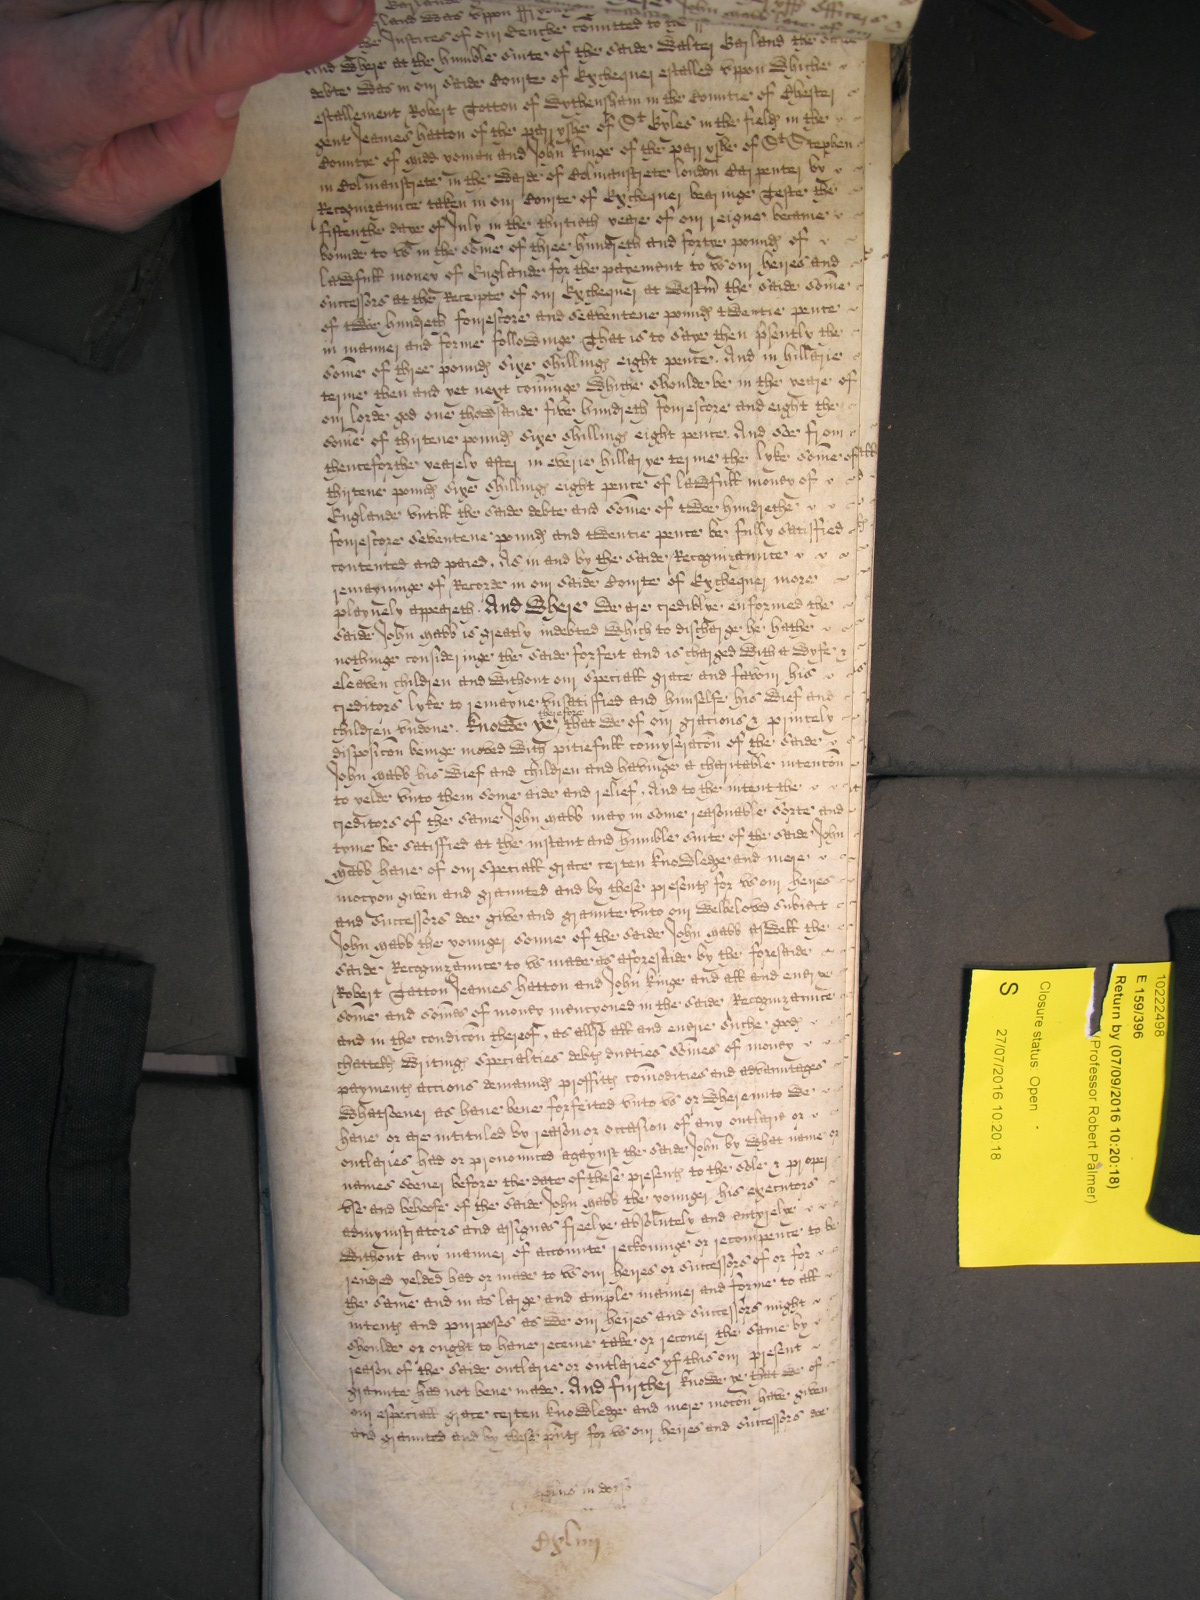 the Justices of our Benche comitted to
And where at the humble suite of the saide Walter Garland the saide
debte was in our saide Courte of Exchequer estalled uppon whiche
estallement Robert Tatton of Wythensham in the Countie of Chester
gent Jeames hatton of the parryshe of St Gyles in the fields in the
Countye of Midd yoman and John Kinge of the parryshe of St Stephen
in Colmanstrete in the warde of Colmanstrete london Carpenter by
Recognizaunce taken in our Courte of Exchequer bearinge Teste the
fiftenthe daye of July in the thirtith yeare of our reigne became
bounde to us in the some of three hundreth and fortye pounds of
lawfull money of Englande for the payement to us our heires and
successors at the Receipte of our Exchequer at Westm the saide some
of twoe hundreth fourescore and seaventene pounds twentie pence
in manner and forme followinge That is to saye then presently the
some of three pounds sixe shillings eight pence. And in hillarie
terme then and yet next cominge whiche shoulde be in the yeare of
our lorde god one thowsande five hundreth fourescore and eight the
some of thirtene pounds sixe shillings eight pence. And soe from
thenceforthe yearely after in everie hillarye terme the lyke some of
thirtene pounds sixe shillings eight pence of lawfull money of
Englande untill the saide debte and some of twoe hundrethe
fourescore seventene pounds and twentie pence be fully satisfied
contented and paied. As in and by the saide Recognizaunce
remayninge of Recorde in our saide Courte of Exchequer more
playnely appeareth. And where we are crediblye enformed the
saide John Mabb is greatly indebted which to discharge he hathe
nothinge consideringe the saide forfeit and is charged with a wyfe &
eleaven children and without our speciall grace and favour his
creditors lyke to remayne unsatisfied and himselfe his wief and
children undone. Knowe ye therefore that we of our gracious & princely
disposicon beinge moved with pitiefull comyseracon of the saide
John Mabb his wief and children and havinge a charitable intencon
to yelde unto them some aide and relief. And to the intent the
creditors of the same John Mabb may in some reasonable sorte and
tyme be satisfied at the instant and humble suite of the saide John
Mabb have of our speciall grace certen knowledge and mere
mocyon given and graunted and by these presents for us our heires
and successors doe give and graunte unto our welbeloved subiect
John Mabb the younger sonne of the saide John Mabb aswell the
saide Recognizaunce to us made as aforesaide by the foresaide
Robert Tatton Jeames hatton and John Kinge and all and entyre
some and somes of money mencyoned in the saide Recognizaunce
and in the condicon thereof, as allso all and entyre suche goods
chattells writings specialties debts dueties somes of money
payments accions demaunds proffitts comodities and advauntages
whatsoever as have bene forfeited unto us or whereunto we
have or are intituled by reason or occasion of any outlarie or
outlaries had or pronounced agaynst the saide John by what name or
names soever before the date of these presents to the sole & proper
use and behoofe of the saide John Mabb the younger his executors
admynistrators and assignes freelye absolutely and entyrelye
without any manner of accounte reckoninge or recompence to be
rendred yelded had or made to us our heires or successors of or for
the same and in as large and ample manner and forme to all
intents and purposes as we our heires and successors might
shoulde or ought to have receive take or recover the same by
reason of the saide outlarie or outlaries yf this our present
graunte had not bene made. And further knowe ye that we of
our especiall grace certen knowledge and mere mocon have given
and graunted and by these pnts for us our heires and successors doe
10222498
E 159/396
Return by (07/09/2016 10:20:18)
(Professor Robert Palmer)
Closure status: Open
S 27/07/2016 10:20:18